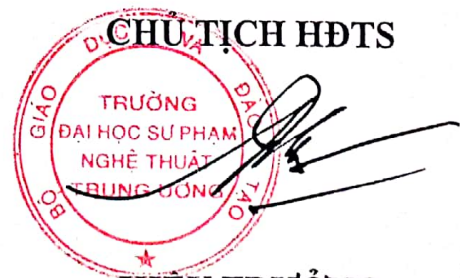 CHỦ TỊCH HĐTS
BỘ GIÁO DỤC VÀ ĐÀO TẠO
TRƯỜNG
ĐẠI HỌC SƯ PHẠM
NGHỆ THUẬT
TRUNG ƯƠNG